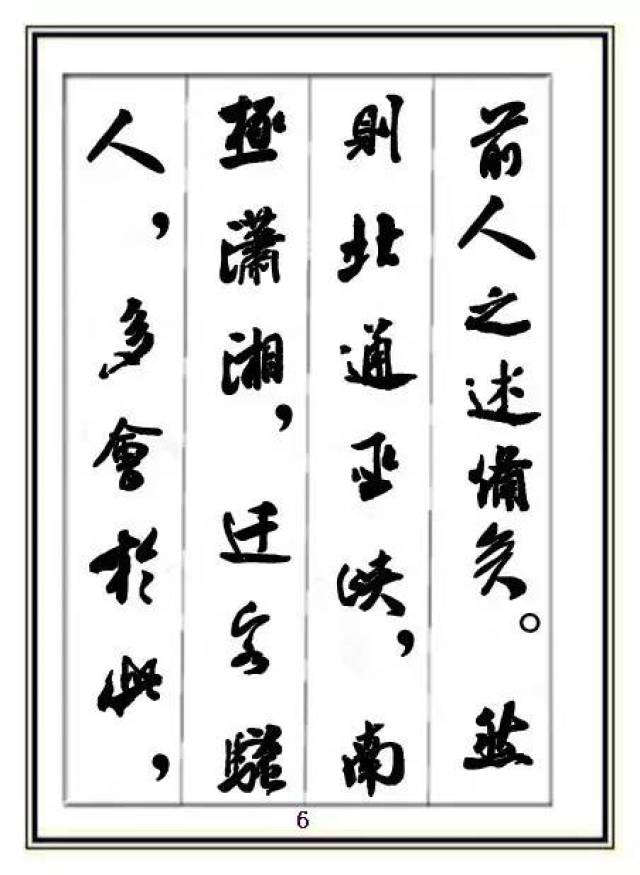 前人之述備矣。然
則北通巫峽，南
極瀟湘，迁客騷
人，多會於此，
6